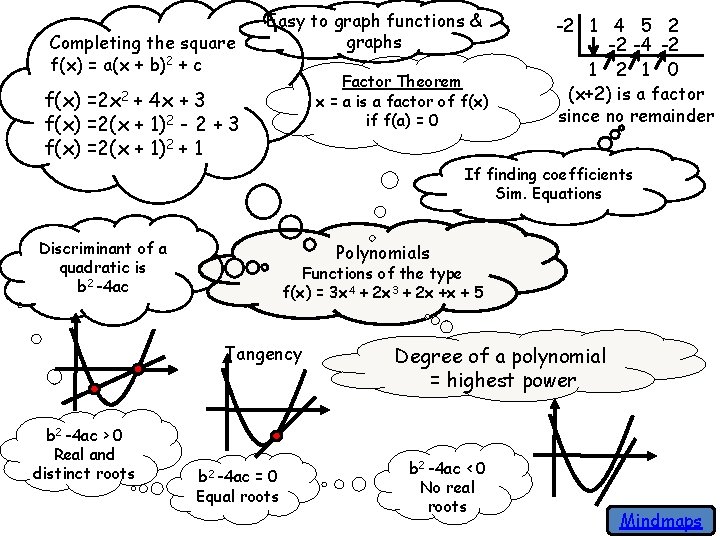 Completing the square
f(x) = a(x + b)² + c
f(x) =2x² + 4x + 3
f(x) =2(x + 1)² - 2 + 3
f(x) =2(x + 1)² + 1
Easy to graph functions &
graphs
Factor Theorem
x = a is a factor of f(x)
if f(a) = 0
-2 1 4 5 2
-2 -4 -2
1 2 1 0
(x+2) is a factor
since no remainder
If finding coefficients
Sim. Equations
Discriminant of a
quadratic is
b² -4ac
Polynomials
Functions of the type
f(x) = 3x⁴ + 2x³ + 2x +x + 5
Tangency
Degree of a polynomial
= highest power
b² -4ac > 0
Real and
distinct roots
b² -4ac = 0
Equal roots
b² -4ac < 0
No real
roots
Mindmaps